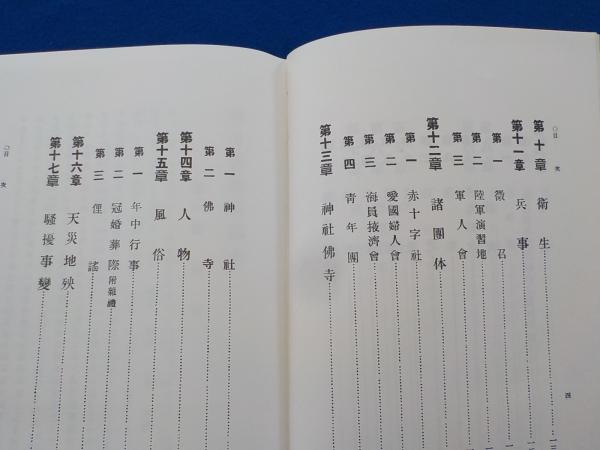 〇目次
第十章 衛生
第十一章 兵事
第一 徴召
第二 陸軍演習地
第三 軍人會
第十二章 諸團体
第一 赤十字社
第二 愛國婦人會
第三 海員掖濟會
第四 靑年團
第十三章 神社佛寺
四
第一 神社
第二 佛寺
第十四章 人物
第十五章 風俗
第一 年中行事
第二 冠婚葬際附雜禮
第三 俚謠
第十六章 天災地殃
第十七章 騷擾事變
〇目次